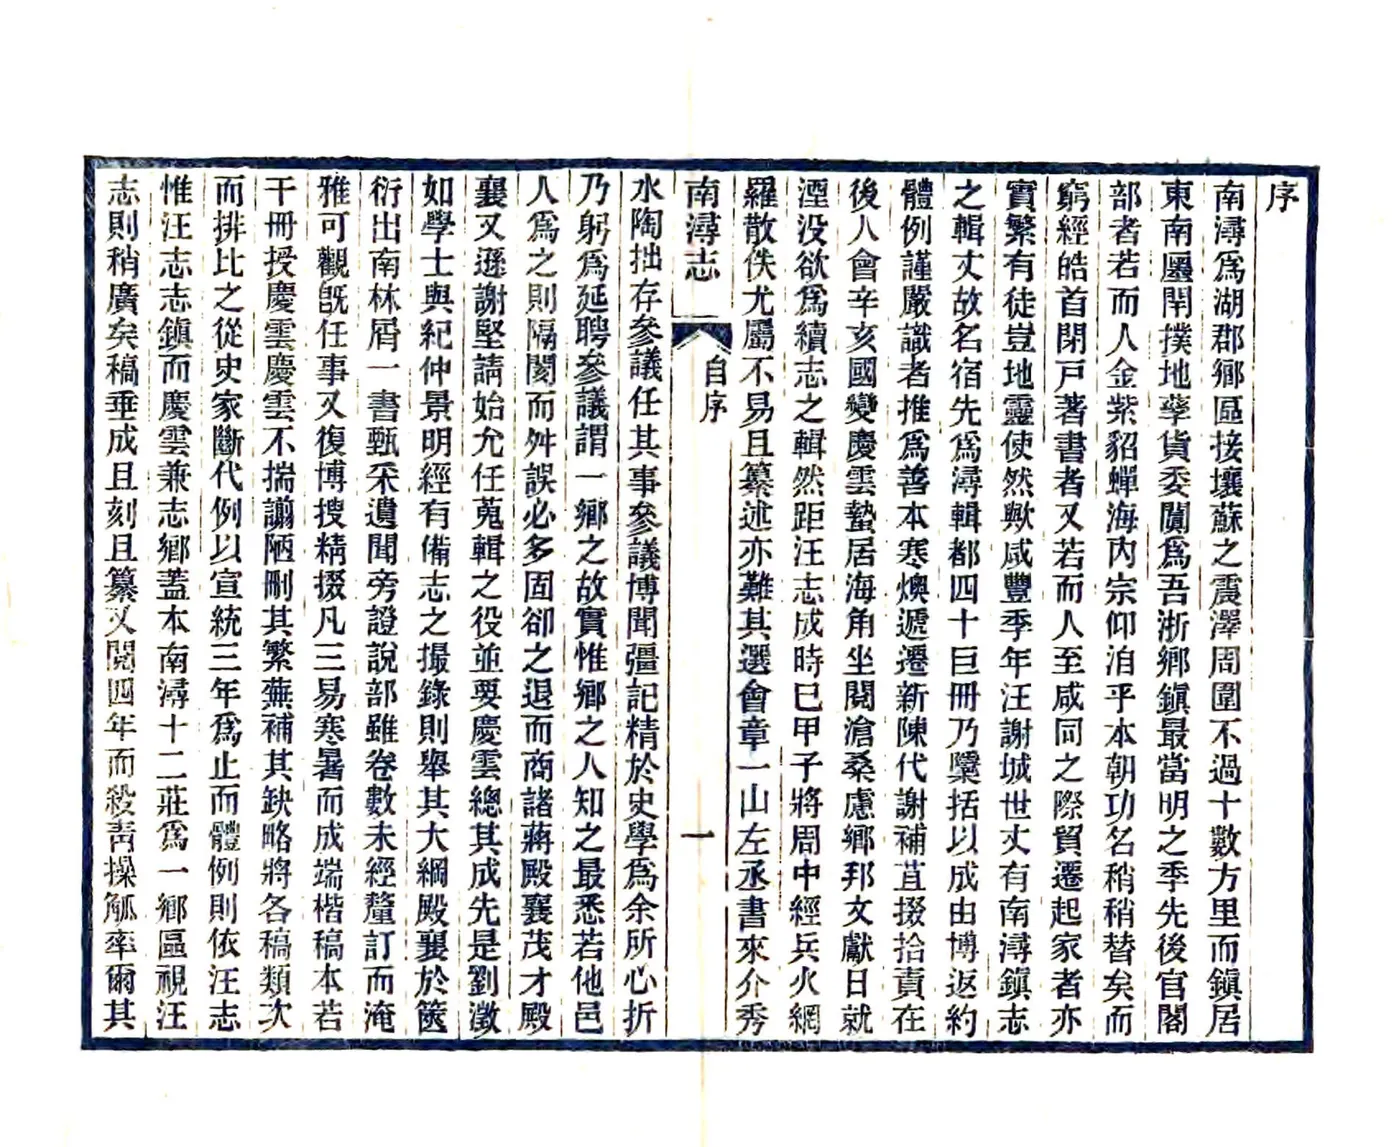 序
南潯爲湖郡鄉區接壤蘇之震澤周圍不過十數方里而鎮居
東南闤閈撲地孳貨委闠爲吾浙鄉鎮最當明之季先後官閣
部者若而人金紫貂蟬海內宗仰洎乎本朝功名稍稍替矣而
窮經皓首閉戸著書者又若而人至咸同之際貿遷起家者亦
實繁有徒豈地靈使然歟咸豐季年汪謝城世丈有南潯鎮志
之輯丈故名宿先爲潯輯都四十巨冊乃櫽括以成由博返約
體例謹嚴識者推爲善本寒燠遞遷新陳代謝補苴掇拾責在
後人會辛亥國變慶雲蟄居海角坐閱滄桑慮鄉邦文獻日就
湮没欲爲續志之輯然距汪志成時已甲子將周中經兵火網
羅散佚尤屬不易且纂述亦難其選會章一山左丞書來介秀
南潯志
自序
一
水陶拙存參議任其事參議博聞彊記精於史學爲余所心折
乃躬爲延聘參議謂一鄉之故實惟鄉之人知之最悉若他邑
人爲之則隔閡而舛誤必多固卻之退而商諸蔣殿襄茂才殿
襄又遜謝堅請始允任蒐輯之役並要慶雲總其成先是劉澂
如學士與紀仲景明經有備志之撮錄則舉其大綱殿襄於篋
衍出南林屑一書甄采遺聞旁證說部雖卷數未經釐訂而淹
雅可觀旣任事又復博搜精掇凡三易寒暑而成端楷稿本若
干冊授慶雲慶雲不揣譾陋刪其繁蕪補其缺略將各稿類次
而排比之從史家斷代例以宣統三年爲止而體例則依汪志
惟汪志志鎮而慶雲兼志鄉蓋本南潯十二莊爲一鄉區視汪
志則稍廣矣稿垂成且刻且纂又閱四年而殺青操觚率爾其